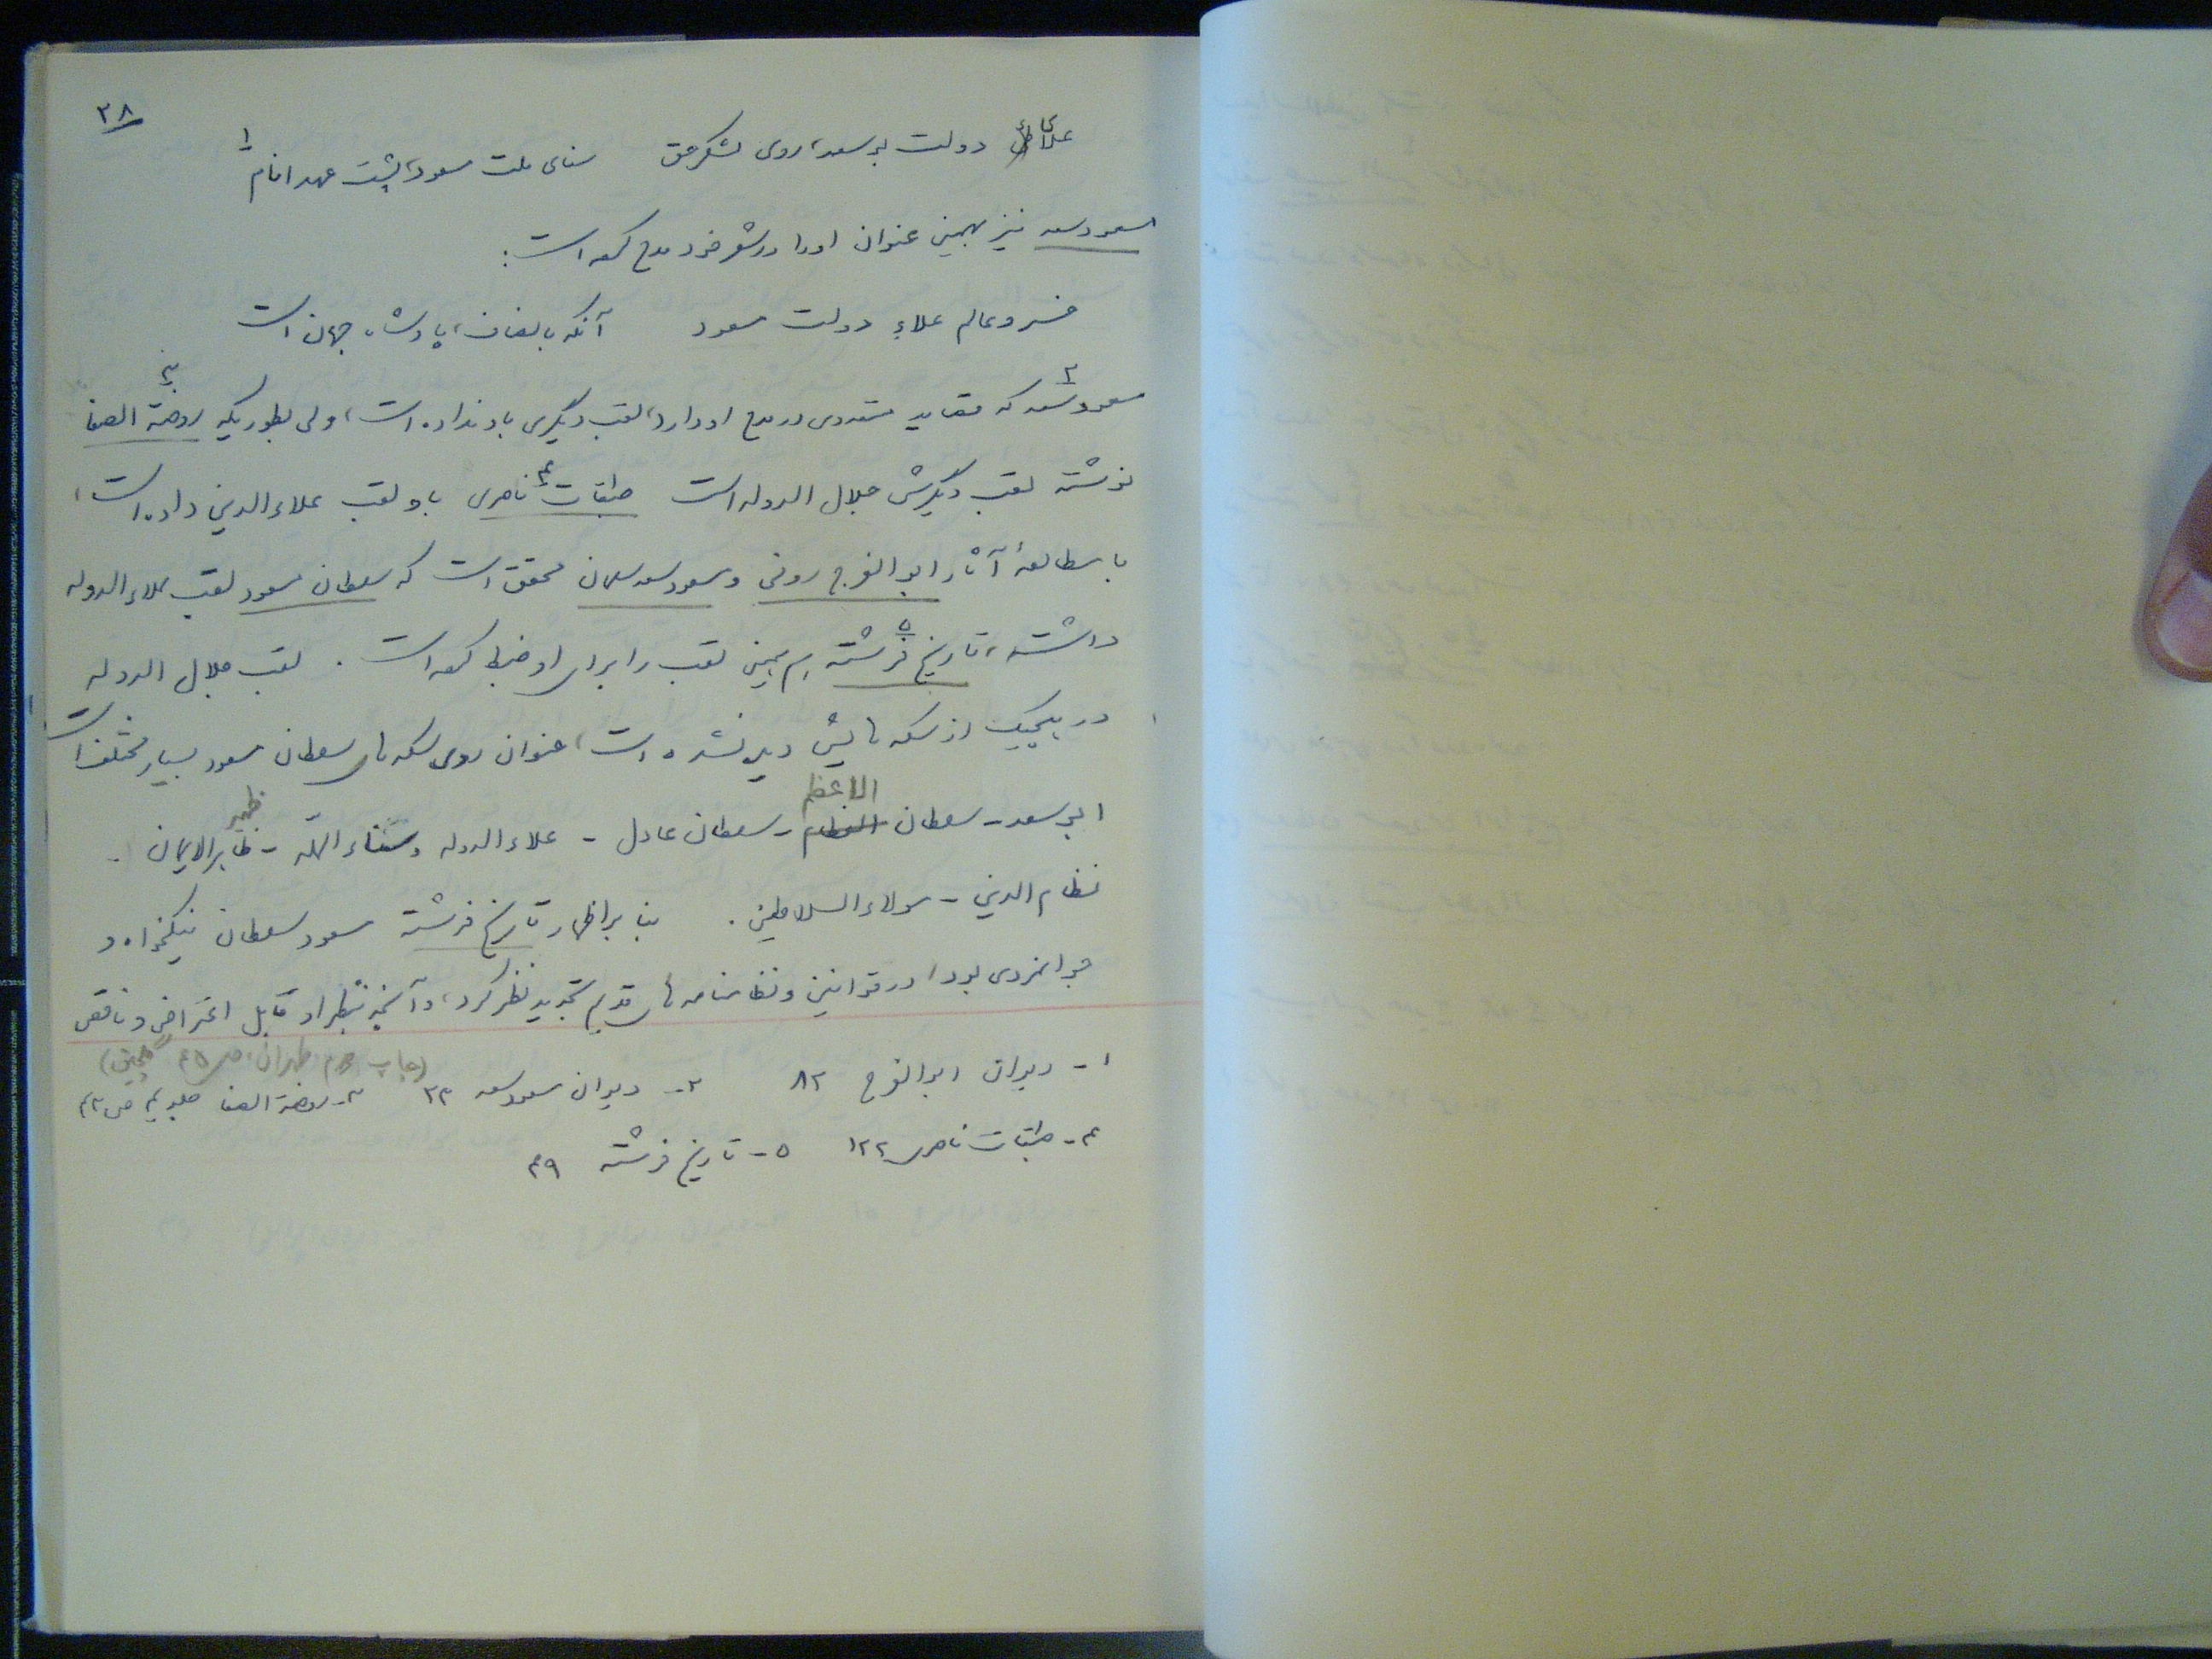 ۲۸
علای دولت بوسعد، روی لشکر حق سنای ملت مسعود، پشت عهد انام ۱
مسعود سعد نیز بهمین عنوان او را در شعر خود مدح کرده است:
خسرو عالم علاء دولت مسعود آنکه بانصاف، پادشاه جهان است
مسعود سعد ۲ که قصاید متعددی در مدح او دارد، لقب دیگری باو نداده است، ولی بطوریکه روضة الصفا ۳
نوشته لقب دیگرش جلال الدوله است طبقات ناصری ۴ باو لقب علاءالدین داده است،
با مطالعهٔ آثار ابوالفرج رونی و مسعود سعد سلمان محقق است که سلطان مسعود لقب علاء الدوله
داشته، تاریخ فرشته ۵ هم همین لقب را برای او ضبط کرده است. لقب جلال الدوله
در هیچیک از سکه هایش دیده نشده است، عنوان روی سکه های سلطان مسعود بسیار مختلف است
ابوسعد - سلطان الاعظم - سلطان عادل - علاء الدوله و سناء الملّه - ظهیر الایمان -
نظام الدین - مولاء السلاطین. بنا براظهار تاریخ فرشته مسعود سلطان نیکخواه و
جوانمردی بود، در قوانین و نظامنامه های قدیم تجدید نظر کرد، و آنچه بنظر او قابل اعتراض و ناقص
۱- دیوان ابوالفرج ۸۲ ۲- دیوان مسعود سعد ۲۳ ۳- روضة الصفا جلد ۴ ص ۴۲
(چاپ طهران، ص
۴- طبقات ناصری ۱۲۲ ۵- تاریخ فرشته ۴۹